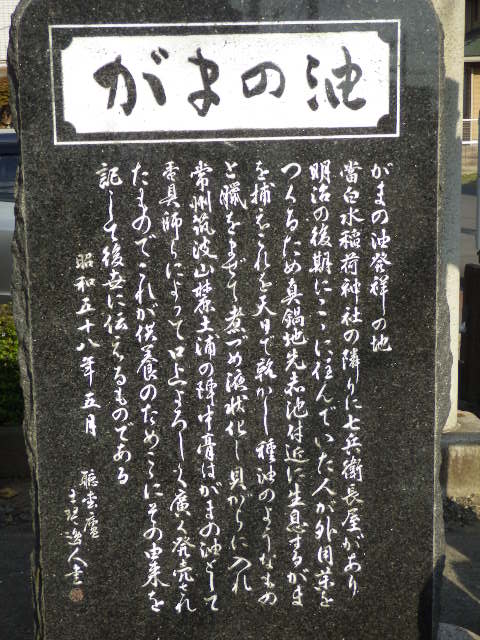 がまの油
がまの油発祥の地
當白水稲荷神社の隣りに七兵衛長屋があり
明治の後期にここに住んでいた人が外用薬を
つくるため真鍋地先赤池付近に生息するがま
を捕えこれを天日で乾かし種油のようなもの
と臓をまぜて煮づめ液状化し貝がらに入れ
常州筑波山麓土浦の陣中膏はがまの油として
香具師らによって口上よろしく廣く発売され
たものでこれが供養のためここにその由来を
記して後世に伝えるものである
昭和五十八年五月
人書